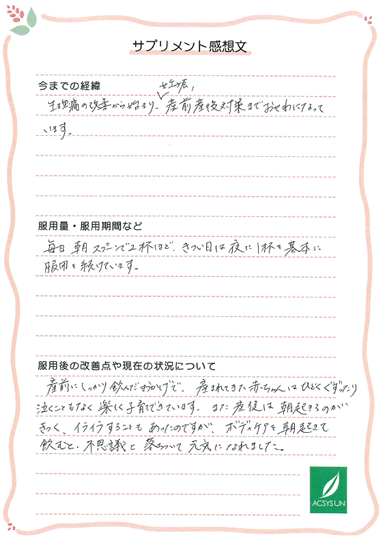 サプリメント感想文
今までの経緯
妊娠、
生理痛の改善から始まり、産前産後対策までおせわになって
います。
服用量・服用期間など
毎日 朝 スプーンで2杯ほど、きつい日は夜に1杯を基本に
服用を続けています。
服用後の改善点や現在の状況について
産前にしっかり飲んだおかげで、産まれてきた赤ちゃんはひどくぐずったり
泣くこともなく楽に子育てできています。また産後は朝起きるのが
きつく、イライラすることもあったのですが、ボディケアを朝起きて
飲むと、不思議と落ちついて元気になれました。
ACSYSUN